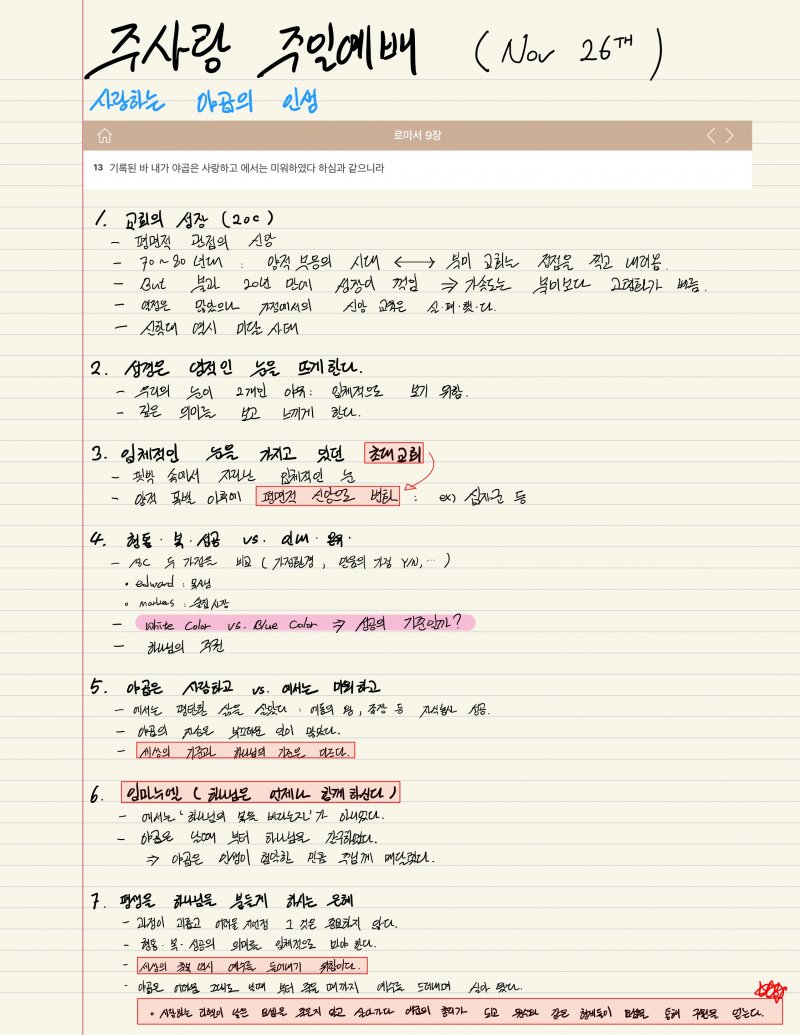 주사랑 주일예배 (Nov 26TH)
사랑하는 야곱의 인생
로마서 9장
13 기록된 바 내가 야곱은 사랑하고 에서는 미워하였다 하심과 같으니라
1. 교회의 성장 (20C)
- 평면적 관점의 신앙
- 70~80년대 : 양적 부흥의 시대 ↔ 북미 교회는 정점을 찍고 내려옴.
- But 불과 20년 만에 성장이 꺾임 ⇒ 가속도는 북미보다 고령화가 빠름.
- 열정은 많았으나 가정에서의 신앙 교육은 실·패·했·다.
- 신학대 역시 미달 사태
2. 성경은 영적인 눈을 뜨게한다.
- 우리의 눈이 2개인 이유: 입체적으로 보기 위함.
- 깊은 의미를 보고 느끼게 한다.
3. 입체적인 눈을 가지고 있던 초대교회
- 핍박 속에서 자라난 입체적인 눈
- 양적 폭발 이후에 평면적 신앙으로 변화 : ex) 십자군 등
4. 형통·복·성공 vs. 인내·온유·
- ABC 두 가정을 비교 (가정환경, 믿음의 가정 Y/N, …)
• edward : 목사님
• markes : 술집사장
- White Color vs. Blue Color ⇒ 성공의 기준인가?
- 하나님의 주권
5. 야곱은 사랑하고 vs. 에서는 미워하고
- 에서는 평탄한 삶을 살았다 : 에돔의 왕, 족장 등 자식농사 성공.
- 야곱의 자손은 부끄러운 일이 많았다.
- 세상의 기준과 하나님의 기준은 다르다.
6. 임마누엘 (하나님은 언제나 함께하신다)
- 에서는 '하나님의 복을 바라는지'가 아니었다.
- 야곱은 날때 부터 하나님을 간구하였다.
⇒ 야곱은 인생이 험악한 만큼 주님께 매달렸다.
7. 평생을 하나님을 붙들게 하시는 은혜
- 과정이 괴롭고 어려울 지언정 그 것은 중요하지 않다.
- 형통·복·성공의 의미를 입체적으로 봐야 한다.
- 세상의 축복 역시 예수를 드러내기 위함이다.
- 야곱은 어려움 그대로 날때 부터 죽을 때까지 예수를 드러내며 살아 왔다.